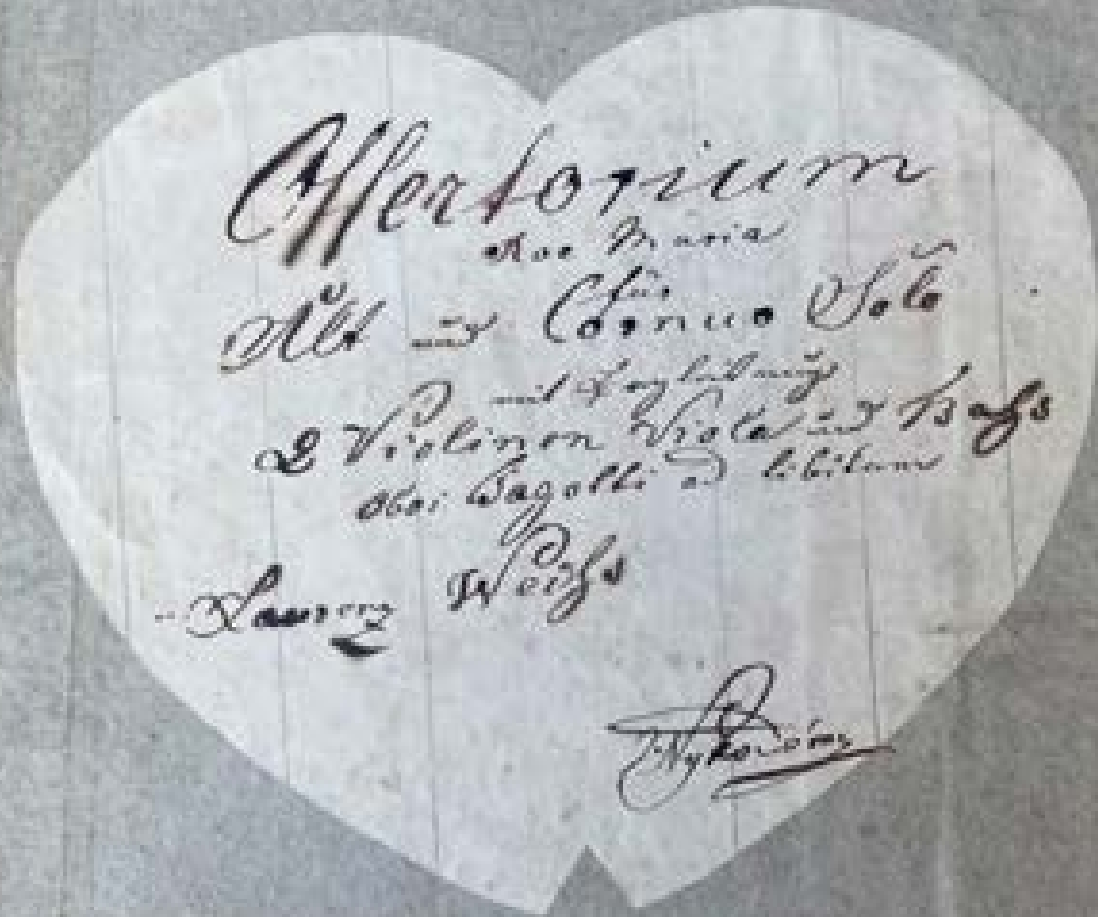 Offertorium
Ave Maria
für
Alt und Cornuo Solo
mit Begleitung
2 Violinen Viola und Bahs
Oboi Fagotti ad libitum
Weihs